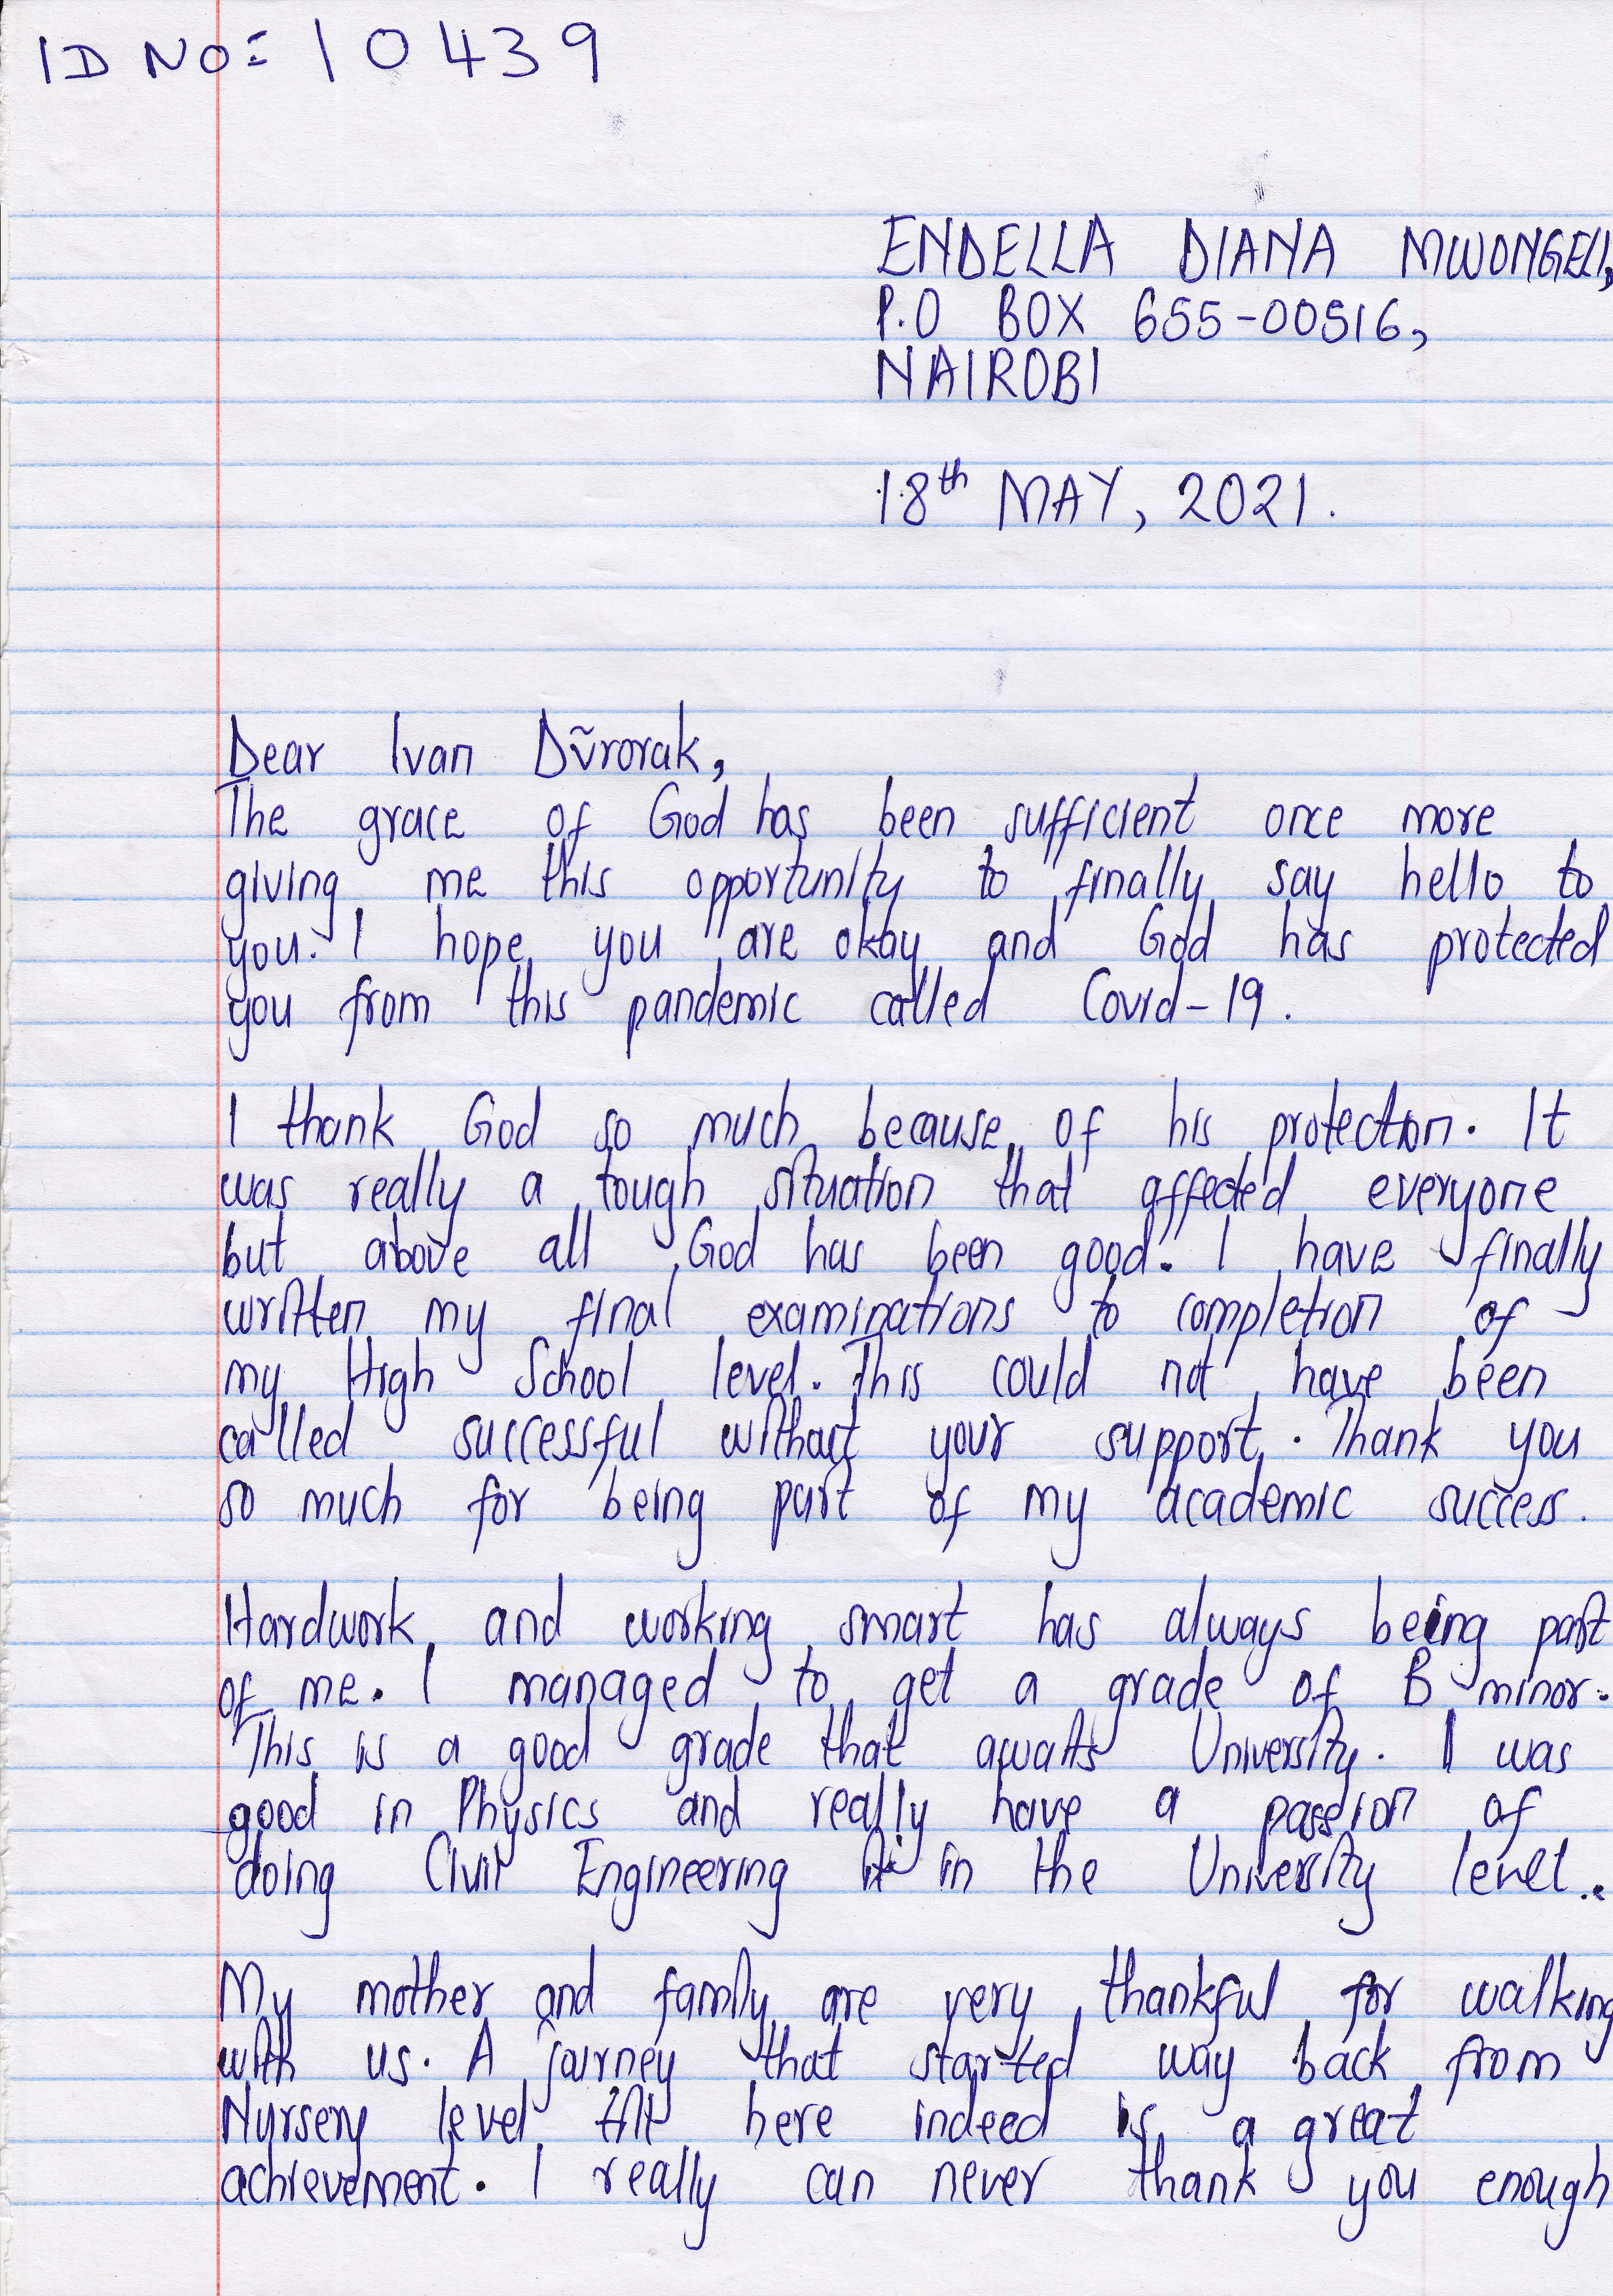 ID NO: 10439
ENDELLA DIANA MWONGELI,
P.O BOX 655-00516,
NAIROBI
18th MAY, 2021.
Dear Ivan Dũrorak,
The grace of God has been sufficient once more
giving me this opportunity to finally say hello to
you. I hope you are okay and God has protected
you from this pandemic called Covid-19.
I thank God so much because of his protection. It
was really a tough situation that affected everyone
but above all God has been good. I have finally
written my final examinations to completion of
my High School level. This could not have been
called successful without your support. Thank you
so much for being part of my academic success.
Hardwork and working smart has always being part
of me. I managed to get a grade of B minor.
This is a good grade that awaits University. I was
good in Physics and really have a passion of
doing Civil Engineering in the University level.
My mother and family are very thankful for walking
with us. A journey that started way back from
Nursery level till here indeed is a great
achievement. I really can never thank you enough